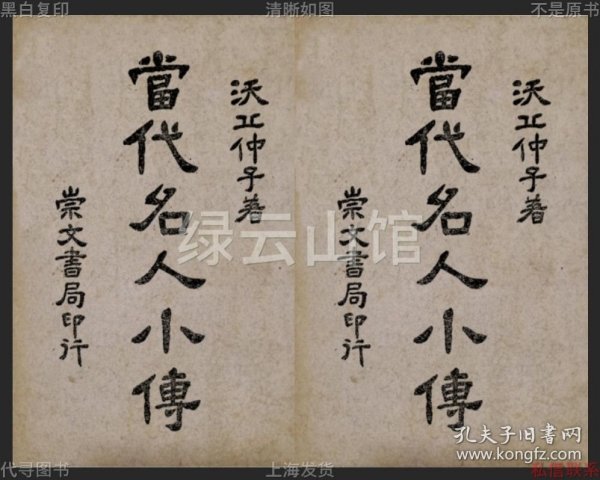 黑白复印
清晰如图
不是原书
沃丘仲子著
當代名人小傳
崇文書局印行
沃丘仲子著
當代名人小傳
崇文書局印行
绿云山馆
孔夫子旧书网
www.kongfz.com
代寻图书
上海发货
私信联系